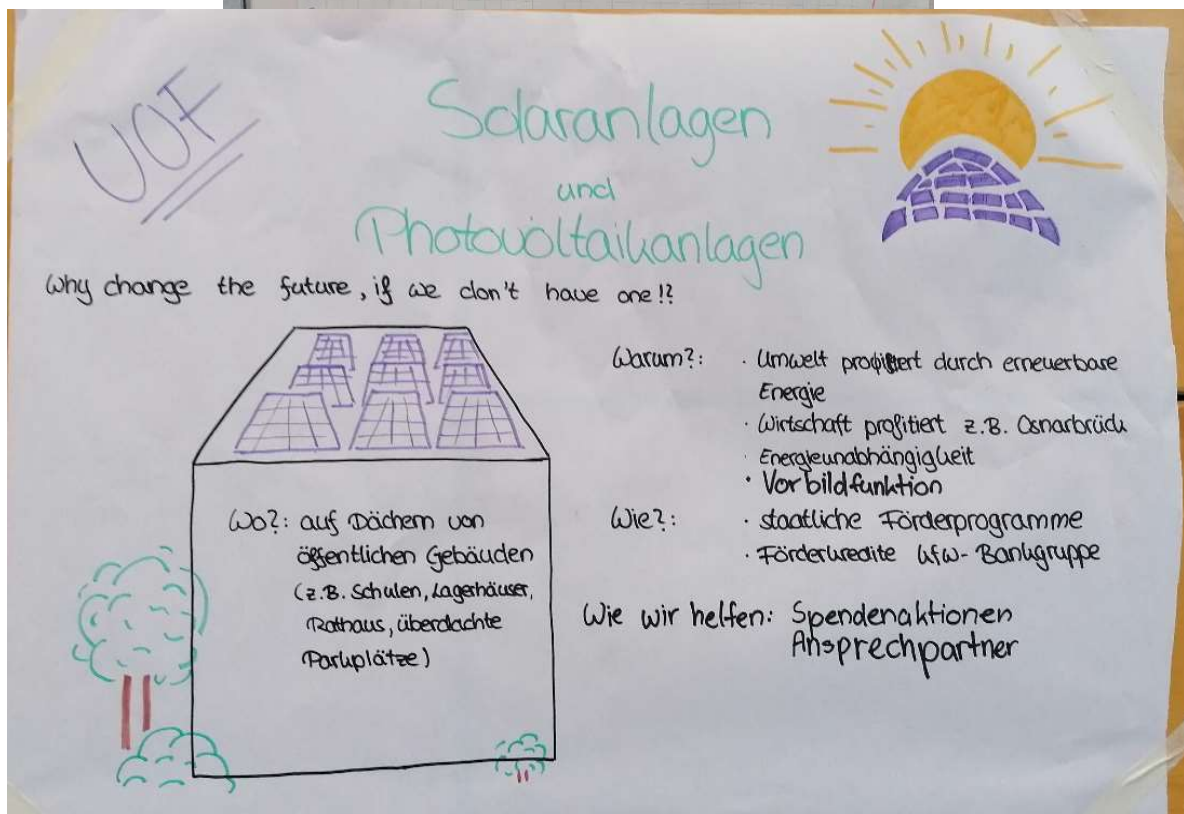 UOF
Solaranlagen
und
Photovoltaikanlagen
Why change the future, if we don't have one!?
Wo?: auf Dächern von
öffentlichen Gebäuden
(z.B. Schulen, Lagerhäuser,
Rathaus, überdachte
Parkplätze)
Warum?: · Umwelt profitiert durch erneuerbare
Energie
· Wirtschaft profitiert z.B. Osnarbrück
· Energieunabhängigkeit
· Vorbildfunktion
Wie?: · staatliche Förderprogramme
· Förderkredite kfw-Bankgruppe
Wie wir helfen: Spendenaktionen
Ansprechpartner